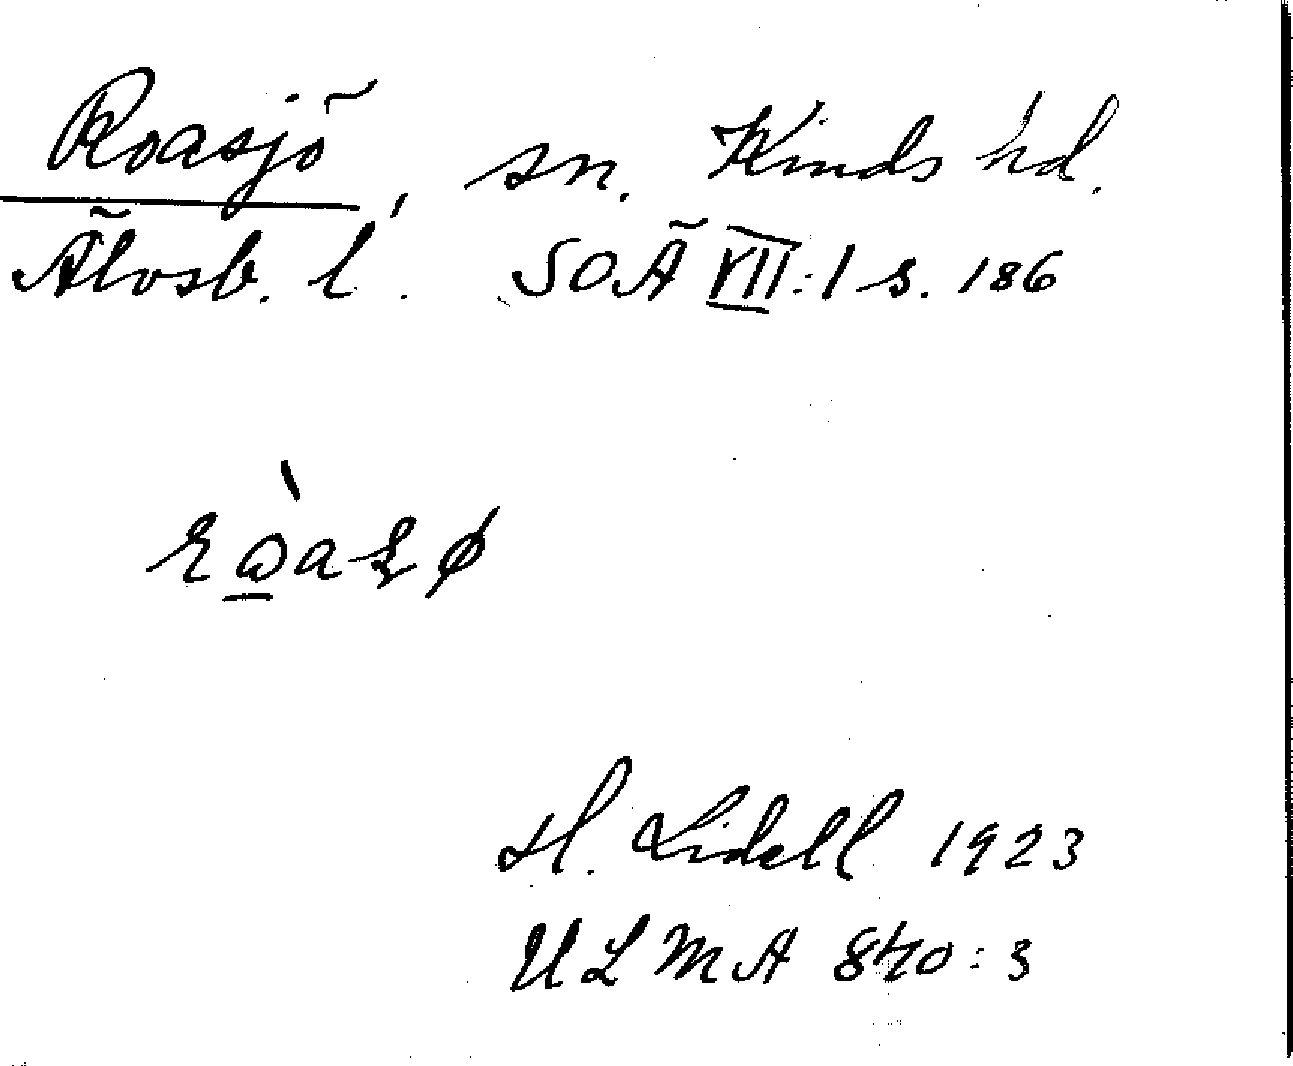 Roasjö, sn. Kinds hd.
Älvsb. l. SOÄ VII:1 s. 186
H. Lidell 1923
ULMA 840:3